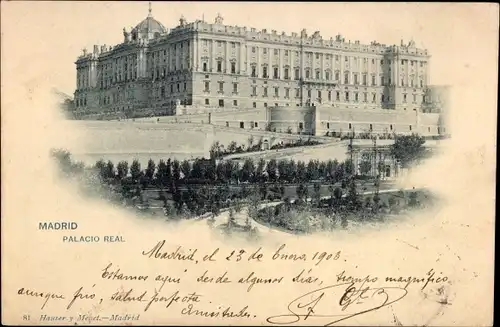 MADRID
PALACIO REAL
Madrid, el 23 de Enero, 1903.
Estamos aquí desde algunos días, tiempo magnífico
aunque frío, salud perfecta
Amistades.
81 Hauser y Menet.-Madrid